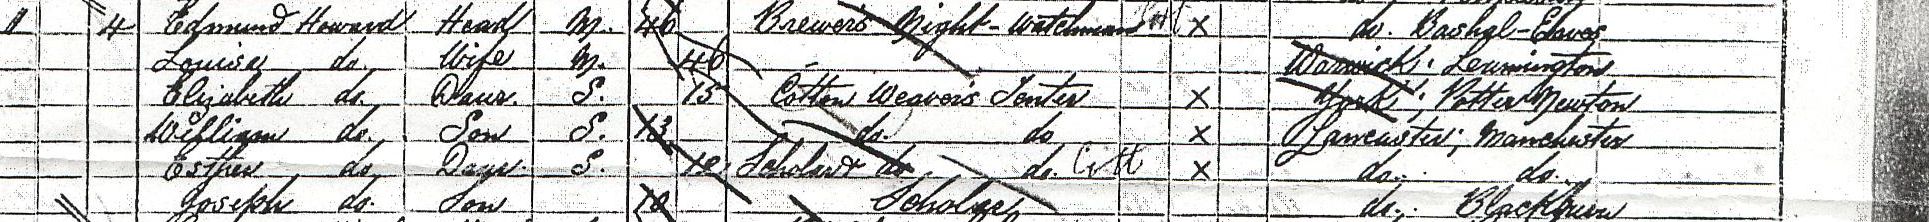 4 Edmund Howard Head M. 46 Brewer's Night-Watchman X do. Bashal-Eaves
Louisa do. Wife M. 46 Warwick; Leamington
Elizabeth do. Daur. S. 15 Cotton Weaver's Tenter X York; Potter Newton
William do. Son S. 13 do. do X Lancaster; Manchester
Esther do. Daur. S. 12 Scholar & do do. X do. do.
Joseph do. Son 10 Scholar do. Blackburn